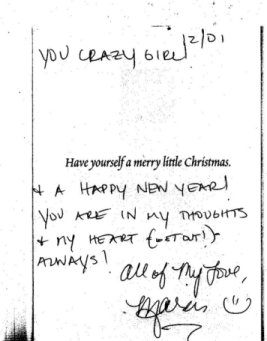 YOU CRAZY GIRL! 12/01
Have yourself a merry little Christmas.
+ A HAPPY NEW YEAR!
YOU ARE IN MY THOUGHTS
+ MY HEART
ALWAYS!
All of My Love,